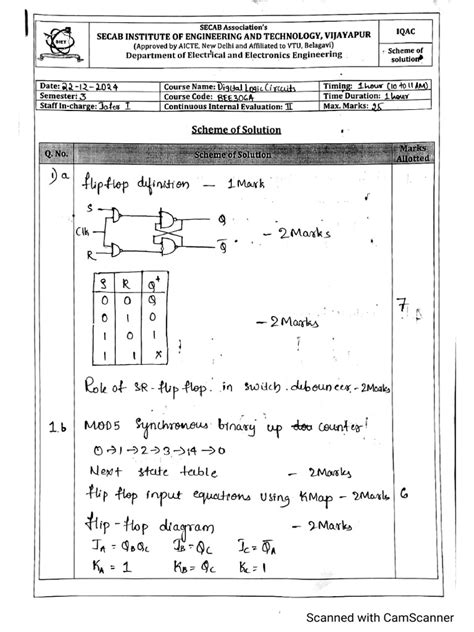 SECAB Association's
SECAB INSTITUTE OF ENGINEERING AND TECHNOLOGY, VIJAYAPUR
(Approved by AICTE, New Delhi and Affiliated to VTU, Belagavi)
Department of Electrical and Electronics Engineering
IQAC
Scheme of
solution
SIET
Date: 22-12-2024 Course Name: Digital Logic Circuits Timing: 1hour (10 to 11 AM)
Semester: 3 Course Code: BEE306A Time Duration: 1hour
Staff In-charge: I Continuous Internal Evaluation: II Max. Marks: 25
Scheme of Solution
Q. No. Scheme of Solution Marks Allotted
1) a flipflop definition — 1 Mark
S
Q
Clk
- 2 Marks
R
Q̅
S R Q⁺
0 0 Q
0 1 0
1 0 1
1 1 x
- 2 Marks
7
Role of SR-flip flop. in switch debouncer - 2 Marks
1.b MOD5 Synchronous binary up counter
0→1→2→3→14→0
Next state table - 2 Marks
flip flop input equations using KMap - 2 Marks 6
flip-flop diagram - 2 Marks
J_A = Q_B Q_C J_B = Q_C J_C = Q̅_A
K_A = 1 K_B = Q_C K_C = 1
Scanned with CamScanner